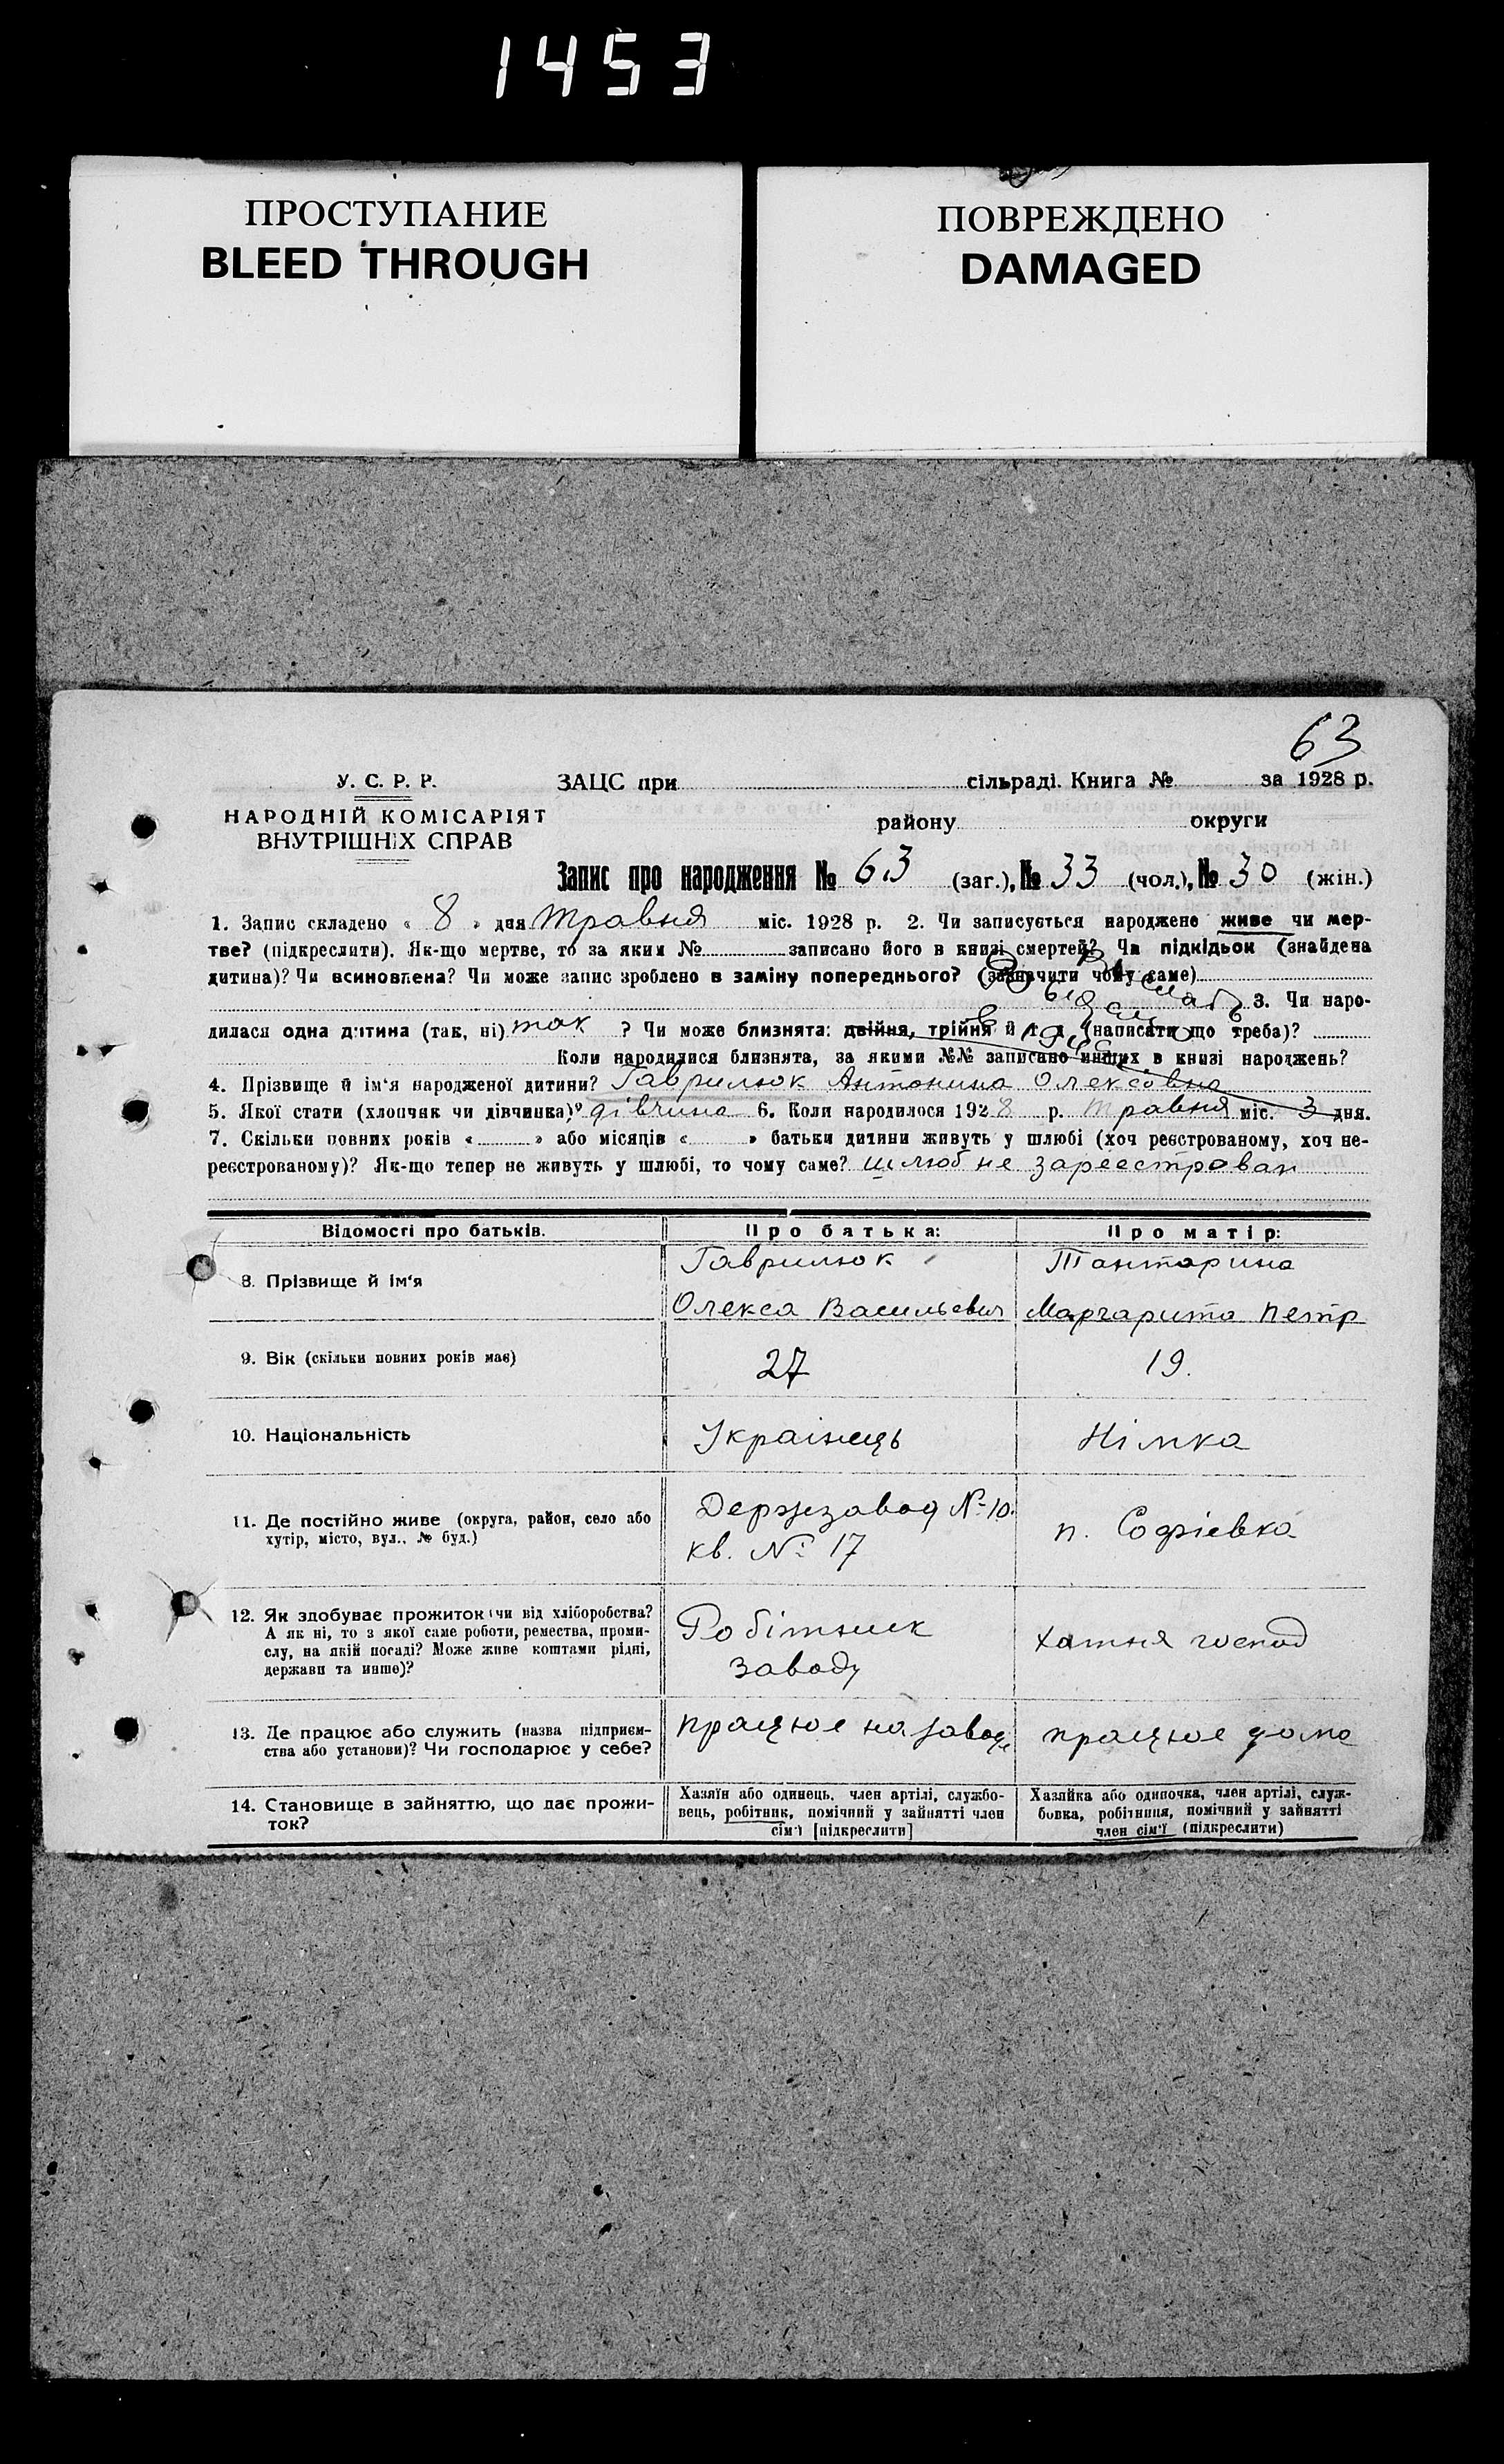 1453
ПРОСТУПАНИЕ
BLEED THROUGH
ПОВРЕЖДЕНО
DAMAGED
63
У. С. Р. Р.
ЗАЦС при сільраді. Книга № за 1928 р.
НАРОДНІЙ КОМІСАРІЯТ
ВНУТРІШНІХ СПРАВ
району округи
Запис про народження № 63 (заг.), № 33 (чол.), № 30 (жін.)
1. Запис складено « 8 » дня Травня міс. 1928 р. 2. Чи записується народжене живе чи мер-
тве? (підкреслити). Як-що мертве, то за яким № записано його в книзі смертей? Чи підкідьок (знайдена
дитина)? Чи всиновлена? Чи може запис зроблено в заміну попереднього? (зазначити чому саме)
3. Чи наро-
дилася одна дитина (так, ні) так ? Чи може близнята: двійня, трійня й т. д. (написати що треба)?
Коли народилися близнята, за якими №№ записано инших в книзі народжень?
4. Прізвище й ім'я народженої дитини? Гаврилюк Антонина Олексовна
5. Якої стати (хлопчик чи дівчинка)? дівчина 6. Коли народилося 1928 р. Травня міс. 3 дня.
7. Скільки повних років « » або місяців « » батьки дитини живуть у шлюбі (хоч реєстрованому, хоч не-
реєстрованому)? Як-що тепер не живуть у шлюбі, то чому саме? шлюб не зареестрован
Відомості про батьків. Про батька: Про матір:
8. Прізвище й ім'я
Гаврилюк
Олекса Васильевич
Тантарина
Маргарита Петр
9. Вік (скільки повних років має) 27 19.
10. Національність Українець Німка
11. Де постійно живе (округа, район, село або
хутір, місто, вул., № буд.)
Держзавод № 10.
кв. № 17
п. Софієвка
12. Як здобуває прожиток (чи від хліборобства?
А як ні, то з якої саме роботи, ремества, проми-
слу, на якій посаді? Може живе коштами рідні,
держави та инше)?
Робітник
заводу
хатня господ
13. Де працює або служить (назва підприєм-
ства або установи)? Чи господарює у себе?
працюе на заводе
працюе дома
14. Становище в зайняттю, що дає прожи-
ток?
Хазяїн або одинець, член артілі, службо-
вець, робітник, помічний у зайнятті член
сім'ї [підкреслити]
Хазяйка або одиночка, член артілі, служ-
бовка, робітниця, помічний у зайнятті
член сім'ї (підкреслити)